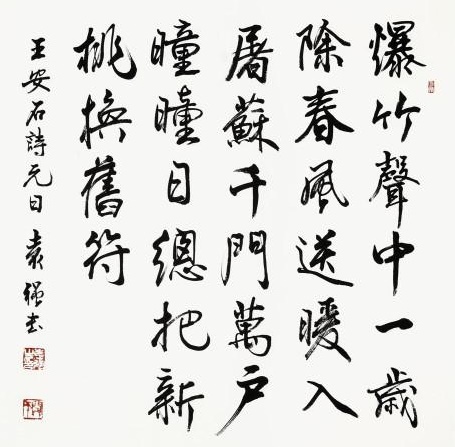 爆竹聲中一歲
除春風送暖入
屠蘇千門萬戶
曈曈日總把新
桃換舊符
王安石詩元日 袁強书